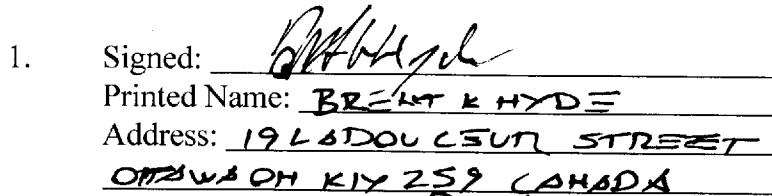 1. Signed:
Printed Name: BRENT K HYDE
Address: 19 LADOUCEUR STREET
OTTAWA ON K1Y 2S9 CANADA